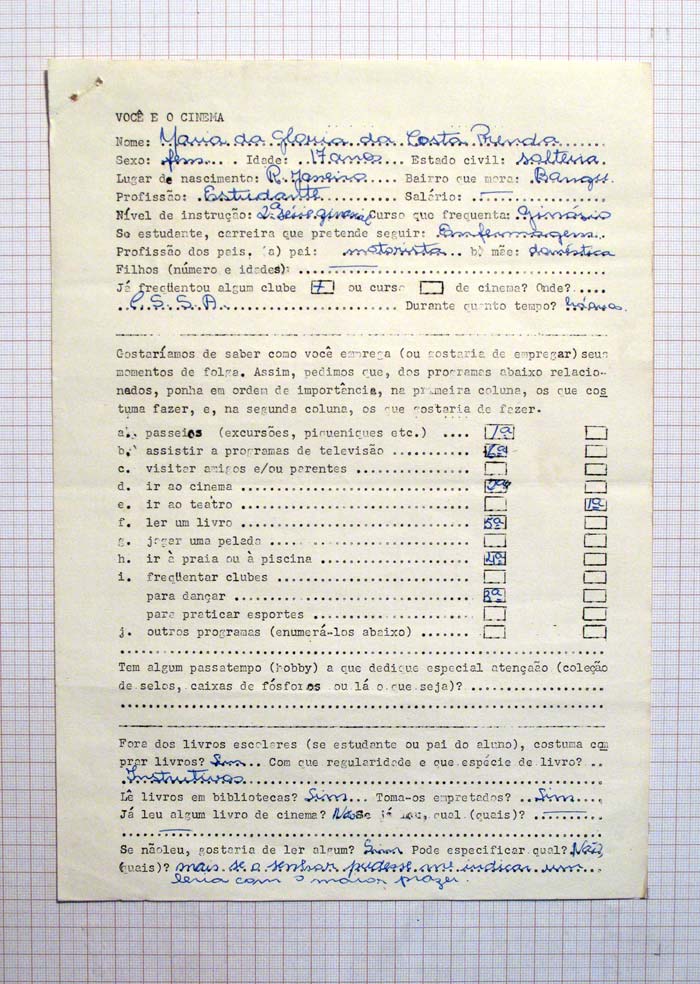 VOCÊ E O CINEMA
Nome: Maria da Gloria da Costa Prenda
Sexo: fem... Idade: 17 anos... Estado civil: solteira.
Lugar de nascimento: R. Janeiro.... Bairro que mora: Bangu.
Profissão: .Estudante......... Salário: .—........
Nível de instrução: 2ª Série ginasial Curso que frequenta: Ginásio
Se estudante, carreira que pretende seguir: .Enfermagem..
Profissão dos pais. (a) pai: ..motorista.. b) mãe: doméstica
Filhos (número e idades): ....——..............................
Já freqüentou algum clube [+] ou curso [ ] de cinema? Onde?.....
...C.S.S.A....................... Durante quanto tempo?
Gostaríamos de saber como você emprega (ou gostaria de empregar) seus
momentos de folga. Assim, pedimos que, dos programas abaixo relacio-
nados, ponha em ordem de importância, na primeira coluna, os que cos
tuma fazer, e, na segunda coluna, os que gostaria de fazer.
a. passeios (excursões, piqueniques etc.) .... 1ª
b. assistir a programas de televisão ........... 6ª
c. visitar amigos e/ou parentes ................
d. ir ao cinema ................................
e. ir ao teatro ................................ 1ª
f. ler um livro ................................ 5ª
g. jogar uma pelada ............................
h. ir à praia ou à piscina ..................... 4ª
i. freqüentar clubes ...........................
para dançar ................................. 3ª
para praticar esportes ......................
j. outros programas (enumerá-los abaixo) .......
Tem algum passatempo (hobby) a que dedique especial atençaão (coleção
de selos, caixas de fósforos ou lá o que seja)? ...................
Fora dos livros escolares (se estudante ou pai do aluno), costuma com
prar livros? Sim... Com que regularidade e que espécie de livro?...
.Instrutivos
Lê livros em bibliotecas? Sim... Toma-os empretados? ..Sim....
Já leu algum livro de cinema? Não Se já leu, qual (quais)? ..——....
....——....
Se nãoleu, gostaria de ler algum? Sim Pode especificar qual? Não,
(quais)? mais se o senhor pudesse me indicar um
leria com o maior prazer.